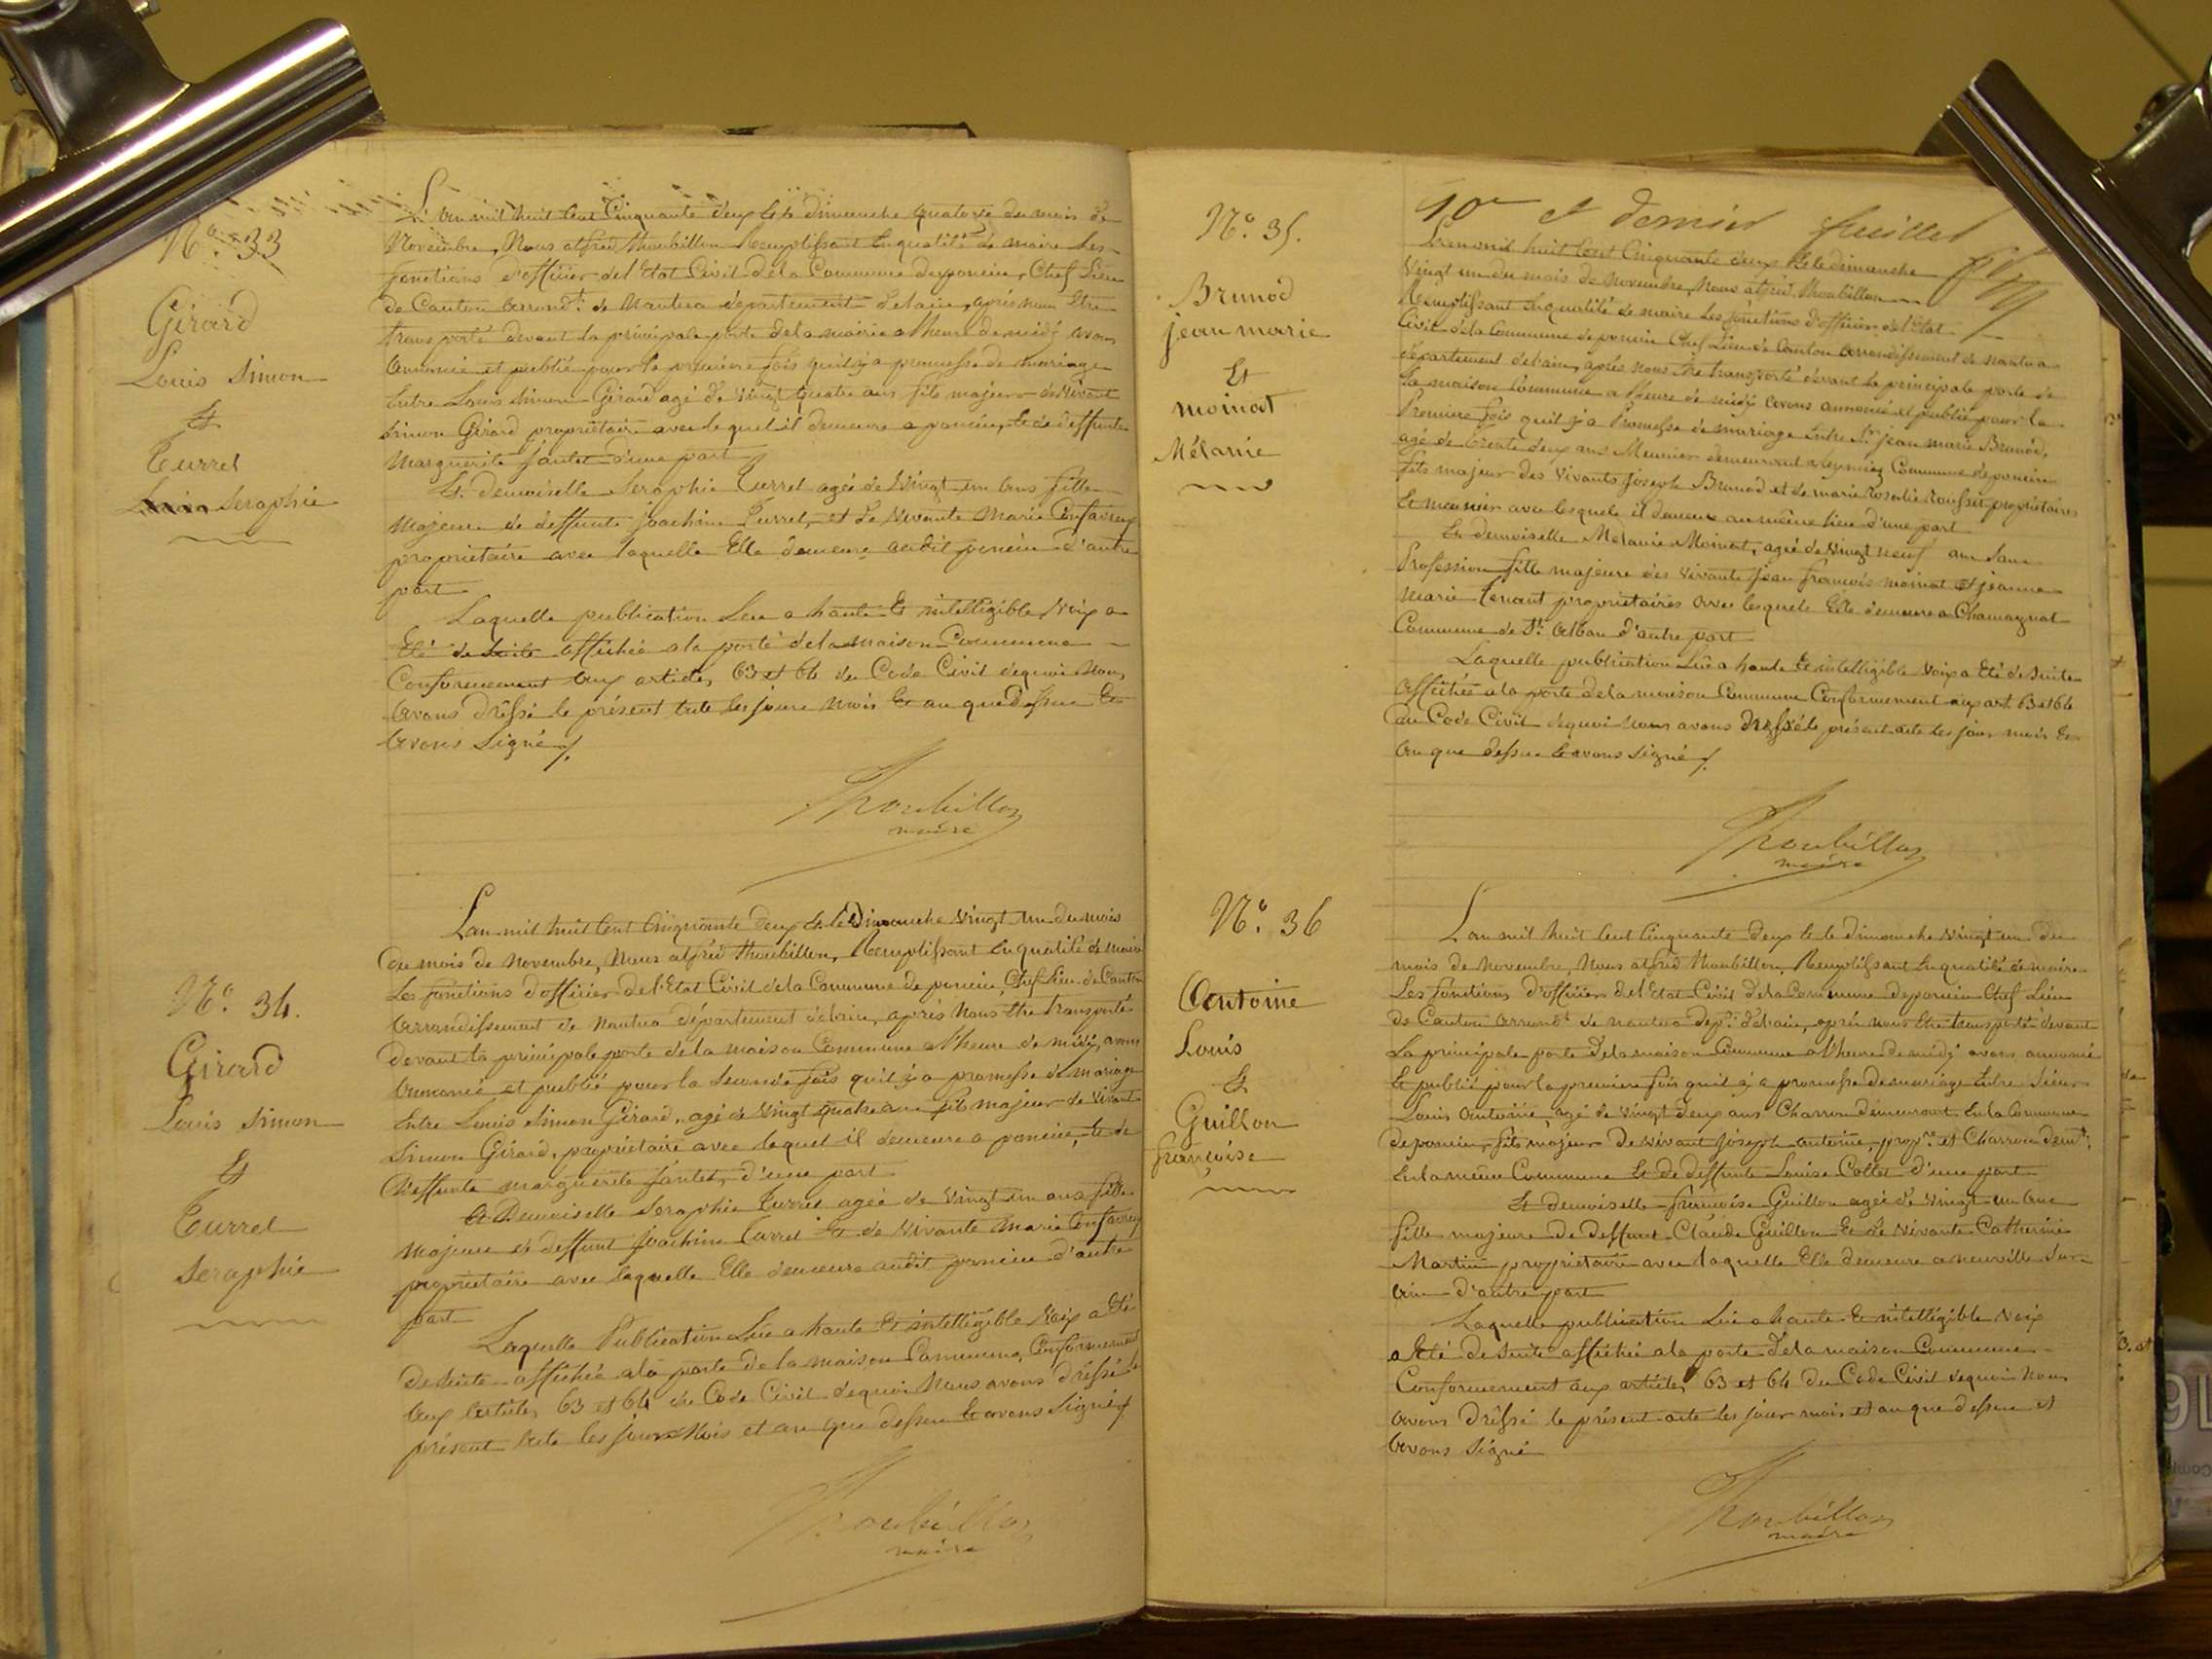 N.° 33
Girard
Louis Simon
Et
Turrel
Seraphie
L'an mil huit Cent Cinquante deux Et le dimanche quatorze du mois de
Novembre, Nous alfred Thoubillon Remplissant En qualité de maire Les
fonctions d'officier de l'Etat Civil de la Commune de poncin, Chef Lieu
de Canton arrond.t de Nantua département de l'ain, après nous Etre
transporté devant la principale porte de la mairie a l'heure de midi avons
annoncé et publié pour la première fois qu'il y a promesse de mariage
Entre Louis Simon Girard agé de vingt quatre ans fils majeur de vivant
Simon Girard propriétaire avec lequel il demeure a poncin, Et de deffunte
Marguerite fantet d'une part
Et demoiselle Seraphie Turrel agée de vingt un ans fille
Majeure de deffunt joachim Turrel, et de vivante Marie
propriétaire avec laquelle Elle demeure audit poncin d'autre
part
Laquelle publication Lue a haute Et intelligible voix a
Eté de suite affichée a la porte de la maison Commune
Conformement aux articles 63 et 64 du Code Civil de quoi Nous
avons dressé le présent acte les jour mois Et an que dessus Et
avons Signé
Thoubillon
maire
N.° 34.
Girard
Louis Simon
Et
Turrel
Seraphie
L'an mil huit Cent Cinquante deux Et le Dimanche vingt un du mois
du mois de Novembre, Nous alfred Thoubillon, Remplissant En qualité de maire
Les fonctions d'officier de l'Etat Civil de la Commune de poncin, Chef Lieu de Canton
arrondissement de Nantua département de l'ain, après Nous Etre Transporté
devant la principale porte de la maison Commune a l'heure de midi, avons
annoncé et publié pour la Seconde fois qu'il y a promesse de mariage
Entre Louis Simon Girard, agé de vingt quatre ans fils majeur de vivant
Simon Girard, propriétaire avec lequel il demeure a poncin, Et de
deffunte marguerite fantet, d'une part
Et Demoiselle Seraphie Turrel agée de vingt un ans fille
Majeure de deffunt joachim Turrel Et de vivante Marie
propriétaire avec laquelle Elle demeure audit poncin d'autre
part
Laquelle Publication Lue a haute Et intelligible voix a Eté
de suite affichée a la porte de la maison Commune, Conformement
aux articles 63 et 64 du Code Civil de quoi Nous avons dressé le
présent acte les jour Mois et an que dessus Et avons Signé
Thoubillon
maire
10me et dernier feuillet
N.° 35.
Brunod
jean marie
Et
moinat
Mélanie
L'an mil huit Cent Cinquante deux Et le dimanche
vingt un du mois de novembre, Nous alfred Thoubillon
Remplissant En qualité de maire Les fonctions d'officier de l'Etat
Civil de la Commune de poncin Chef Lieu de Canton arrondissement de nantua
département de l'ain, après nous Etre transporté devant la principale porte de
la maison Commune a l'heure de midi avons annoncé et publié pour la
Première fois qu'il y a Promesse de mariage Entre Sr. jean marie Brunod,
agé de trente deux ans Meunier demeurant a Commune de poncin
fils majeur des vivants joseph Brunod et de marie Rosalie propriétaires
Et meunier avec lesquels il demeure au même lieu d'une part
Et demoiselle Mélanie Moinat, agée de vingt neuf ans sans
Profession fille majeure des vivants jean francois moinat Et jeanne
Marie Tenant propriétaires avec lesquels Elle demeure a Chamagnat
Commune de St. alban d'autre part
Laquelle publication Lue a haute Et intelligible voix a Eté de suite
affichée a la porte de la maison Commune Conformement aux art 63 et 64
du Code Civil de quoi Nous avons dressé le présent acte les jour mois Et
an que dessus Et avons Signé
Thoubillon
maire
N.° 36
Antoine
Louis
Et
Guillon
françoise
L'an mil huit Cent Cinquante deux Et le dimanche vingt un du
mois de Novembre, Nous alfred Thoubillon, Remplissant En qualité de maire
Les fonctions d'officier de l'Etat Civil de la Commune de poncin Chef Lieu
de Canton arrond.t de nantua dep.t de l'ain, après nous Etre transporté devant
La principale porte de la maison Commune a l'heure de midi avons annoncé
Et publié pour la premiere fois qu'il y a promesse de mariage Entre Sieur
Louis antoine, agé de vingt deux ans Charron demeurant En la Commune
de poncin, fils majeur de vivant joseph antoine, prop.re et Charron dem.t
En la même Commune Et de deffunte Louise Collet d'une part
Et demoiselle françoise Guillon agée de vingt un ans
fille majeure de Deffunt Claude Guillon Et de vivante Catherine
Martin propriétaire avec laquelle Elle demeure a neuville Sur
ain d'autre part
Laquelle publication Lue a haute Et intelligible voix
a Eté de suite affichée a la porte de la maison Commune
Conformement aux articles 63 et 64 du Code Civil de quoi Nous
avons dressé le présent acte les jour mois et an que dessus et
avons Signé
Thoubillon
maire